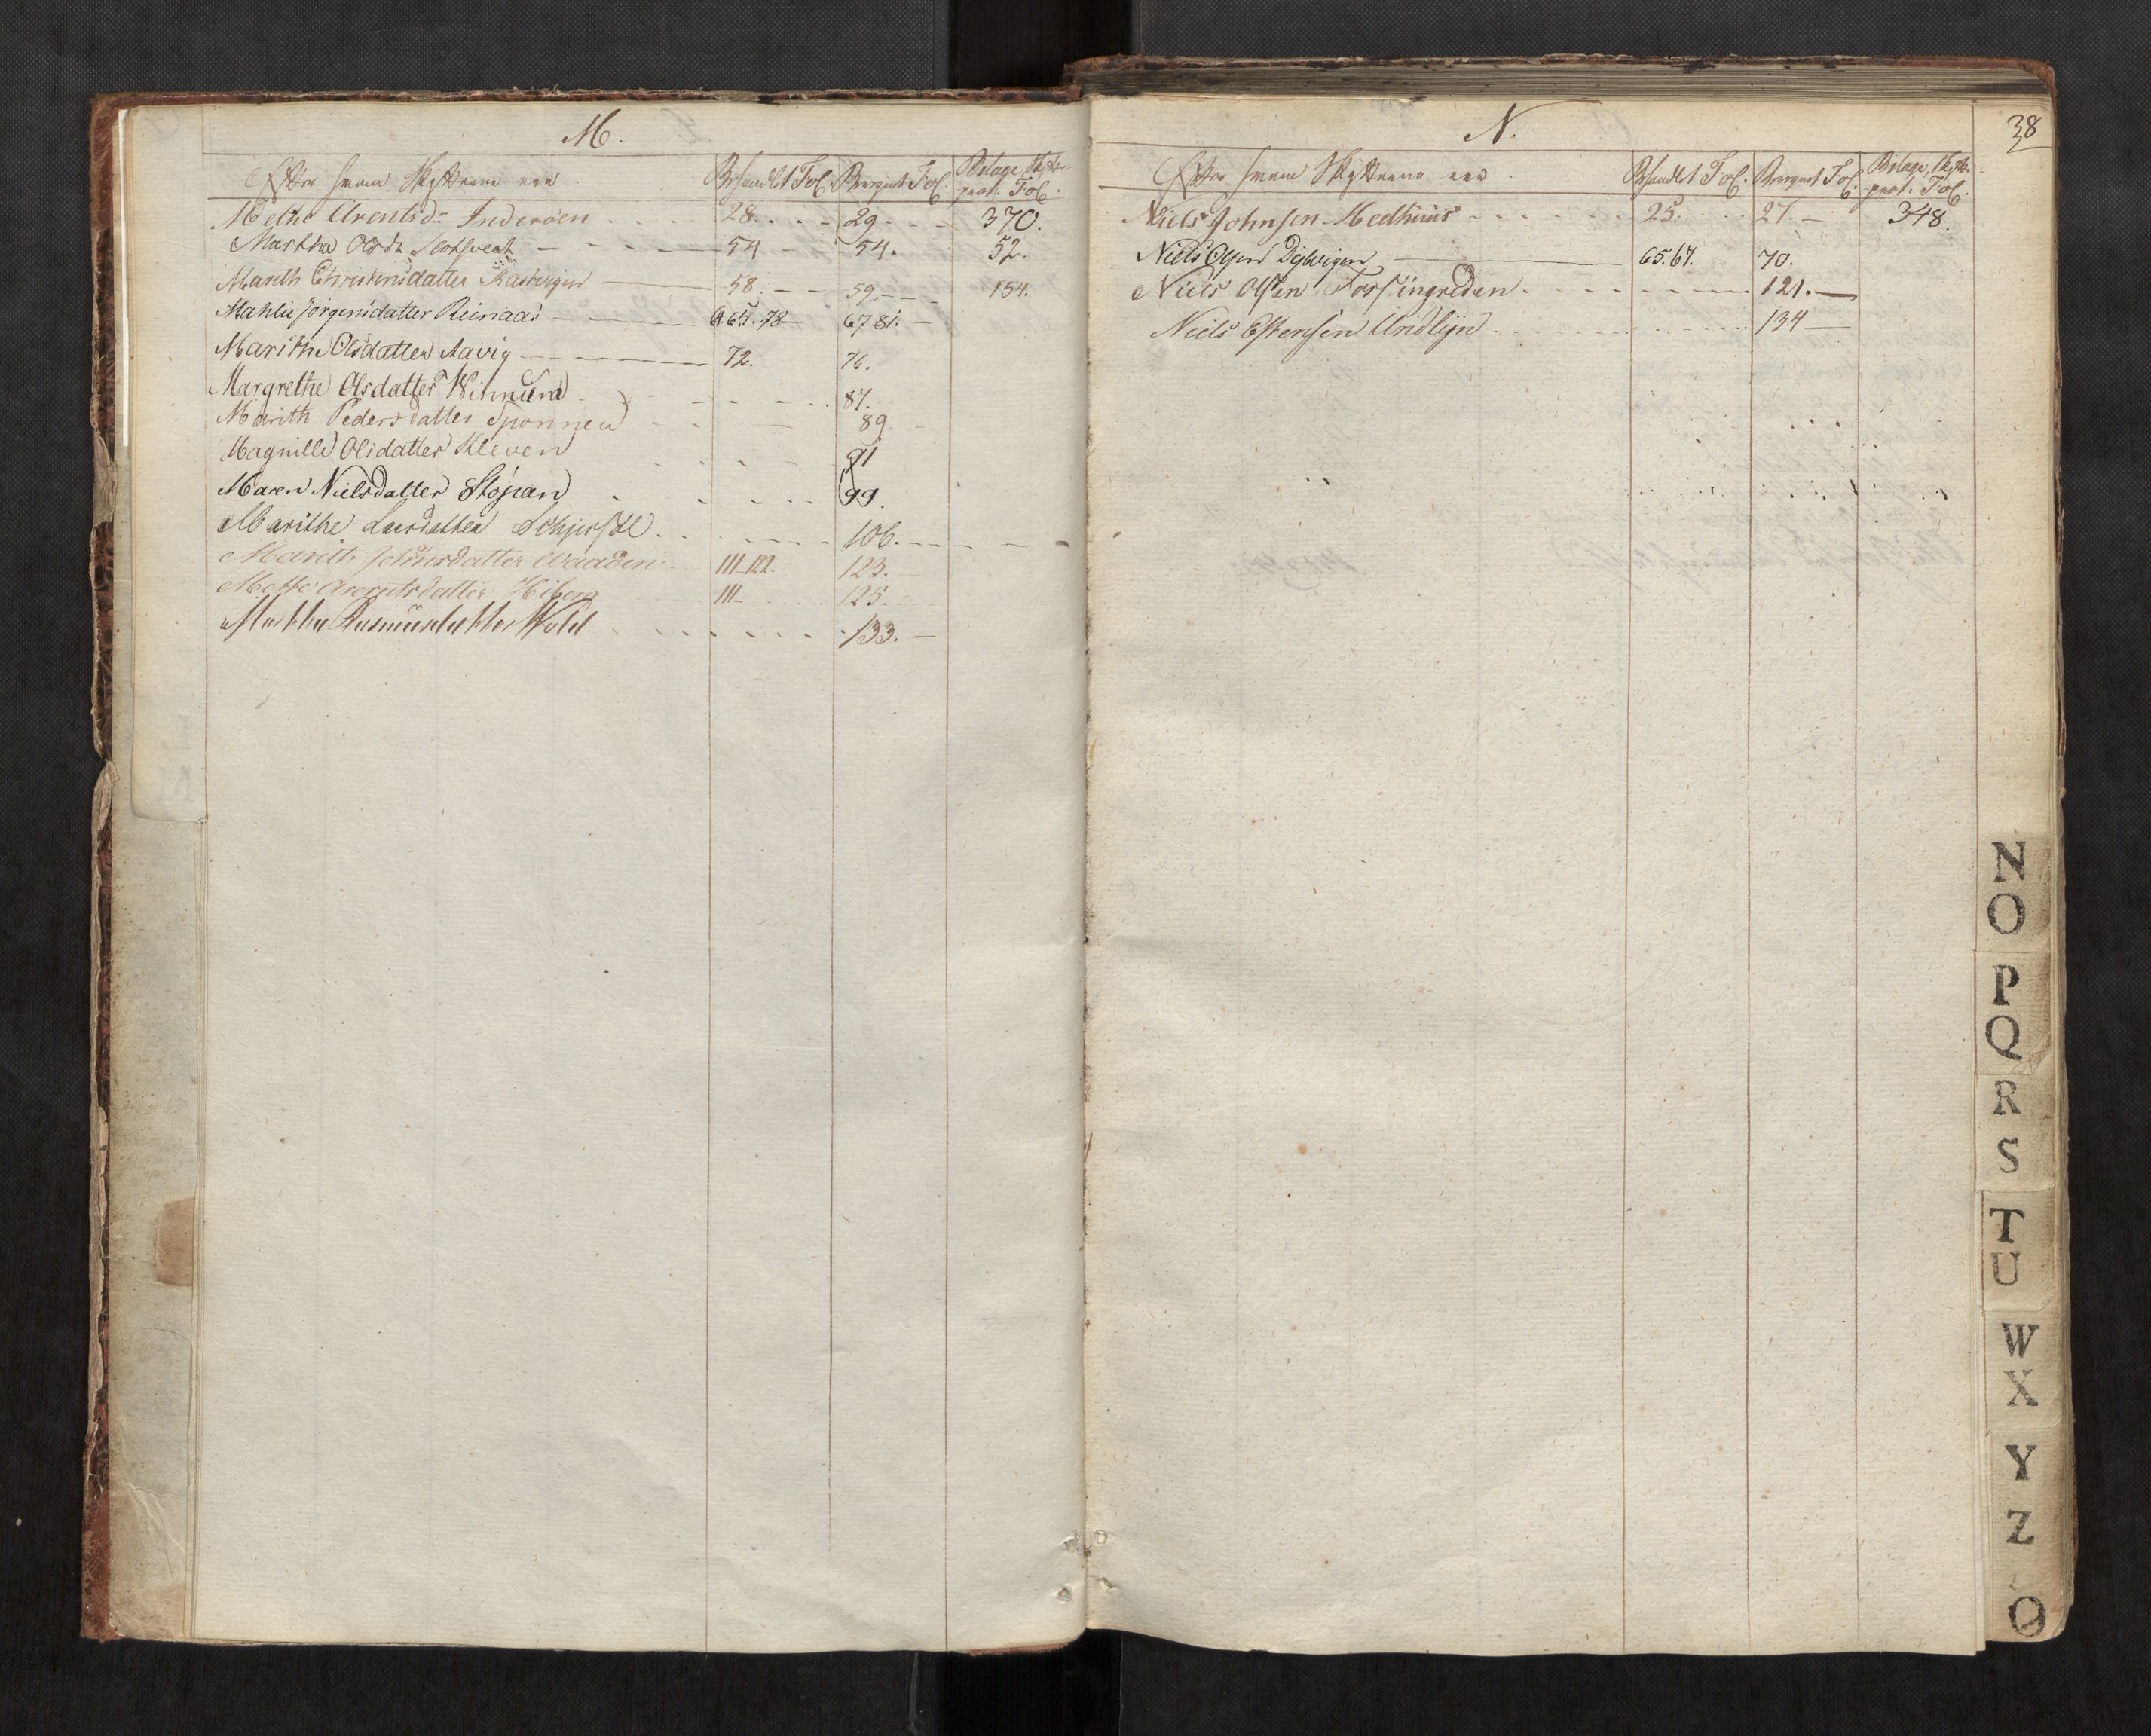 M.
Efter hvem Skifterne ere Behandlet Fol. Beregnet Fol. Bilage, Skifte-
prot. Fol.
Methe Arentsd: Inderøen 28. 29. 370.
Martha Olsdr 54 54. 52.
Marith Christensdatter 58. 59. 154.
Mahlie Jörgensdatter Riinaas 65. 78 67 81.
Marithe Olsdatter Aavig 72. 76.
Margrethe Olsdatter 87.
Marith Pedersdatter Sponnen 89.
Magnille Olsdatter Kleven 91
Maren Nielsdatter Stöpan 99.
Marithe Larsdatter 106.
Marith Johnsdatter Waaden 111-122. 123.
Mette Arentsdatter 111- 125.
Martha Rasmusdatter Wold 133.
N. 38
Efter hvem Skifterne ere. Behandlet Fol. Beregnet Fol. Bilage, Skifte-
prot. Fol.
Niels Johnsen Medhuus 25. 27. 348.
Niels Olsen 65. 67. 70.
Niels Olsen 121.
Niels Estensen 134
N
O
P
Q
R
S
T
U
W
X
Y
Z
Ø